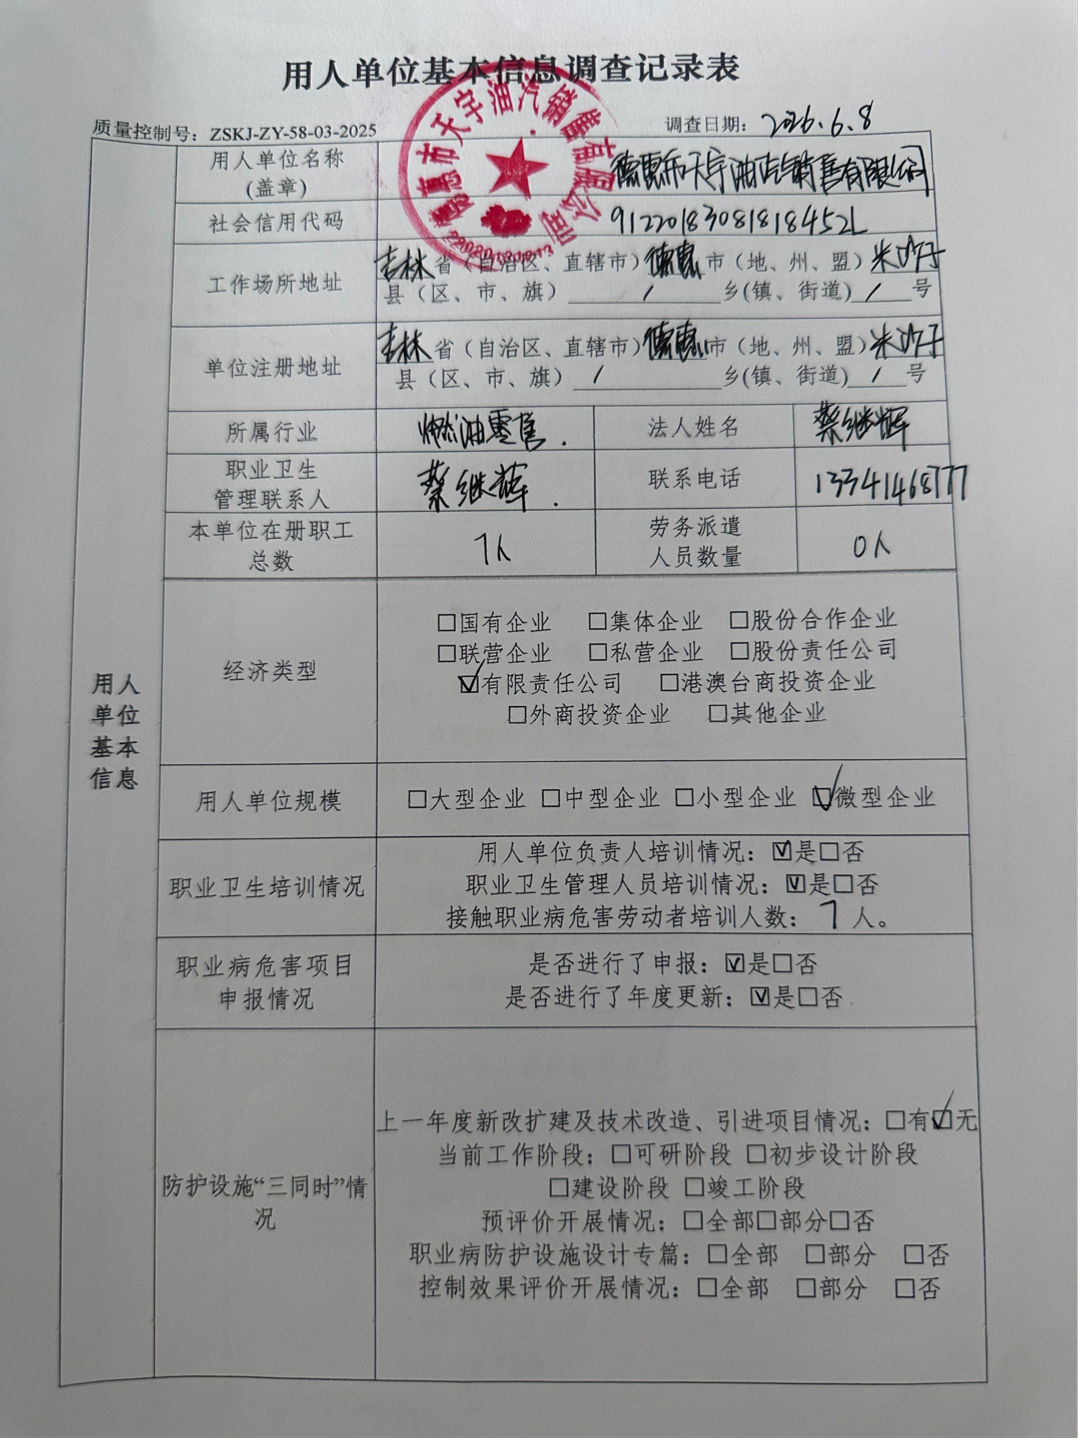 用人单位基本信息调查记录表
质量控制号：ZSKJ-ZY-58-03-2025
调查日期：2026.6.8
用人单位名称
(盖章)
德惠市天宇油汽销售有限公司
德惠市天宇油汽销售有限公司
社会信用代码
91220183081818452L
工作场所地址
吉林省（自治区、直辖市）德惠市（地、州、盟）米沙子
县（区、市、旗）/乡(镇、街道)/号
单位注册地址
吉林省（自治区、直辖市）德惠市（地、州、盟）米沙子
县（区、市、旗）/乡(镇、街道)/号
所属行业
燃油零售.
法人姓名
蔡继辉
职业卫生
管理联系人
蔡继辉.
联系电话
13341468777
本单位在册职工
总数
7人
劳务派遣
人员数量
0人
用人
单位
基本
信息
经济类型
□国有企业 □集体企业 □股份合作企业
□联营企业 □私营企业 □股份责任公司
☑有限责任公司 □港澳台商投资企业
□外商投资企业 □其他企业
用人单位规模
□大型企业 □中型企业 □小型企业 ☑微型企业
职业卫生培训情况
用人单位负责人培训情况：☑是□否
职业卫生管理人员培训情况：☑是□否
接触职业病危害劳动者培训人数：7人。
职业病危害项目
申报情况
是否进行了申报：☑是□否
是否进行了年度更新：☑是□否
防护设施“三同时”情
况
上一年度新改扩建及技术改造、引进项目情况：□有☑无
当前工作阶段：□可研阶段 □初步设计阶段
□建设阶段 □竣工阶段
预评价开展情况：□全部□部分□否
职业病防护设施设计专篇：□全部 □部分 □否
控制效果评价开展情况：□全部 □部分 □否